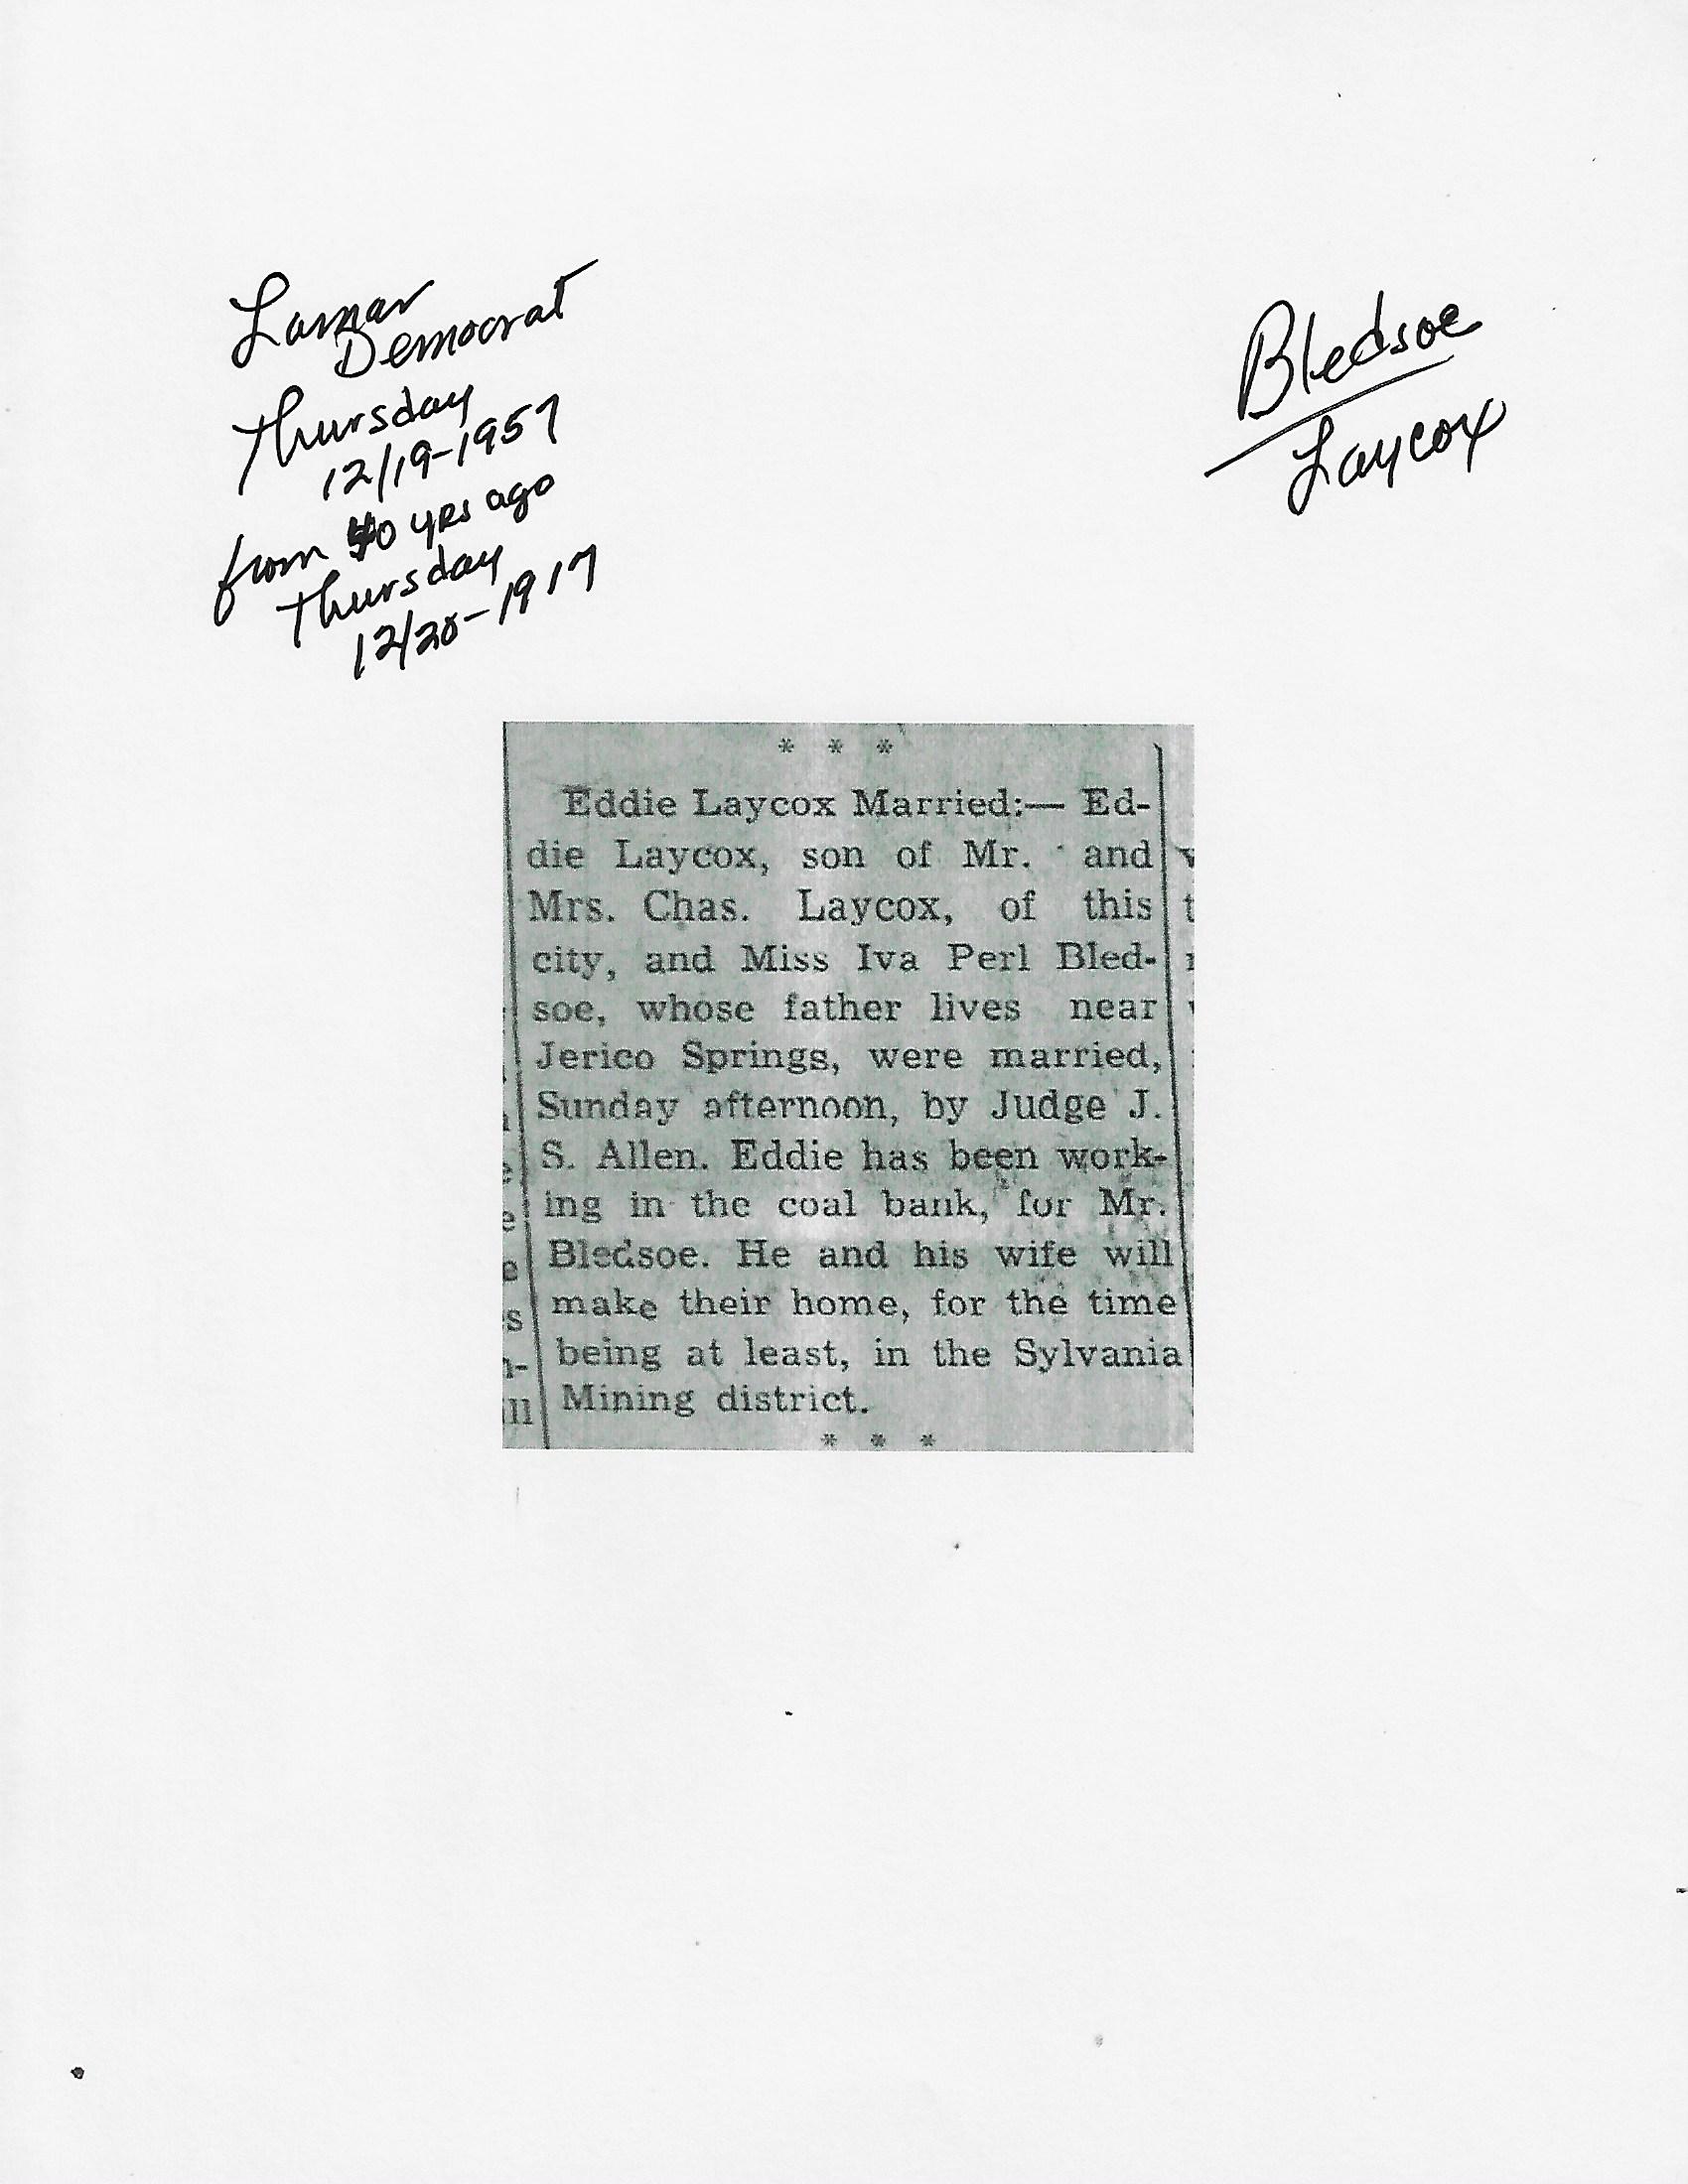 Lamar
Democrat
Thursday
12/19-1957
from 40 yrs ago
Thursday
12/20-1917
Bledsoe
Laycox
* * *
Eddie Laycox Married:— Ed-
die Laycox, son of Mr. and
Mrs. Chas. Laycox, of this
city, and Miss Iva Perl Bled-
soe, whose father lives near
Jerico Springs, were married,
Sunday afternoon, by Judge J.
S. Allen. Eddie has been work-
ing in the coal bank, for Mr.
Bledsoe. He and his wife will
make their home, for the time
being at least, in the Sylvania
Mining district.
* * *